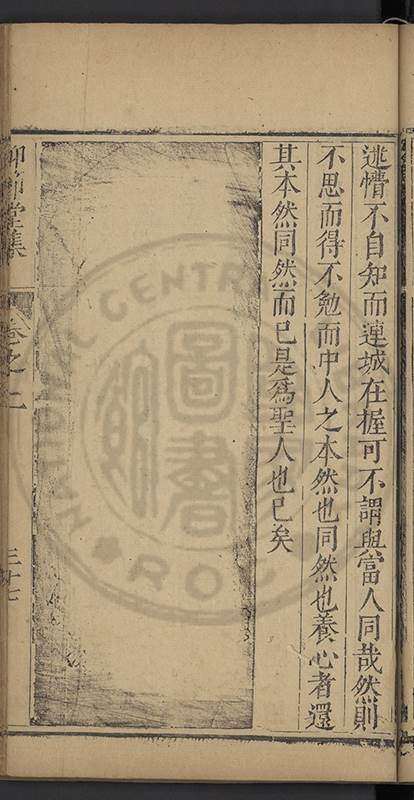 迷懵不自知而連城在握可不謂與當人同哉然則
不思而得不勉而中人之本然也同然也養心者還
其本然同然而已是爲聖人也已矣
仰節堂集
卷之二
三十七
圖書
CENTR